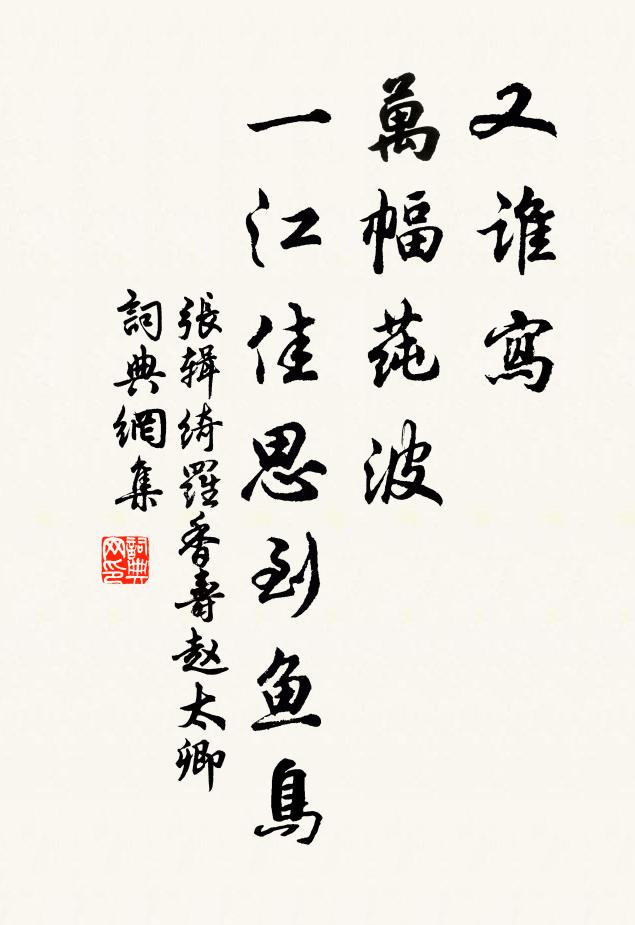 又誰寫
萬幅蒓波
一江佳思到鱼鳥
張輯綺羅香壽赵太卿
詞典網集
詞典
网印